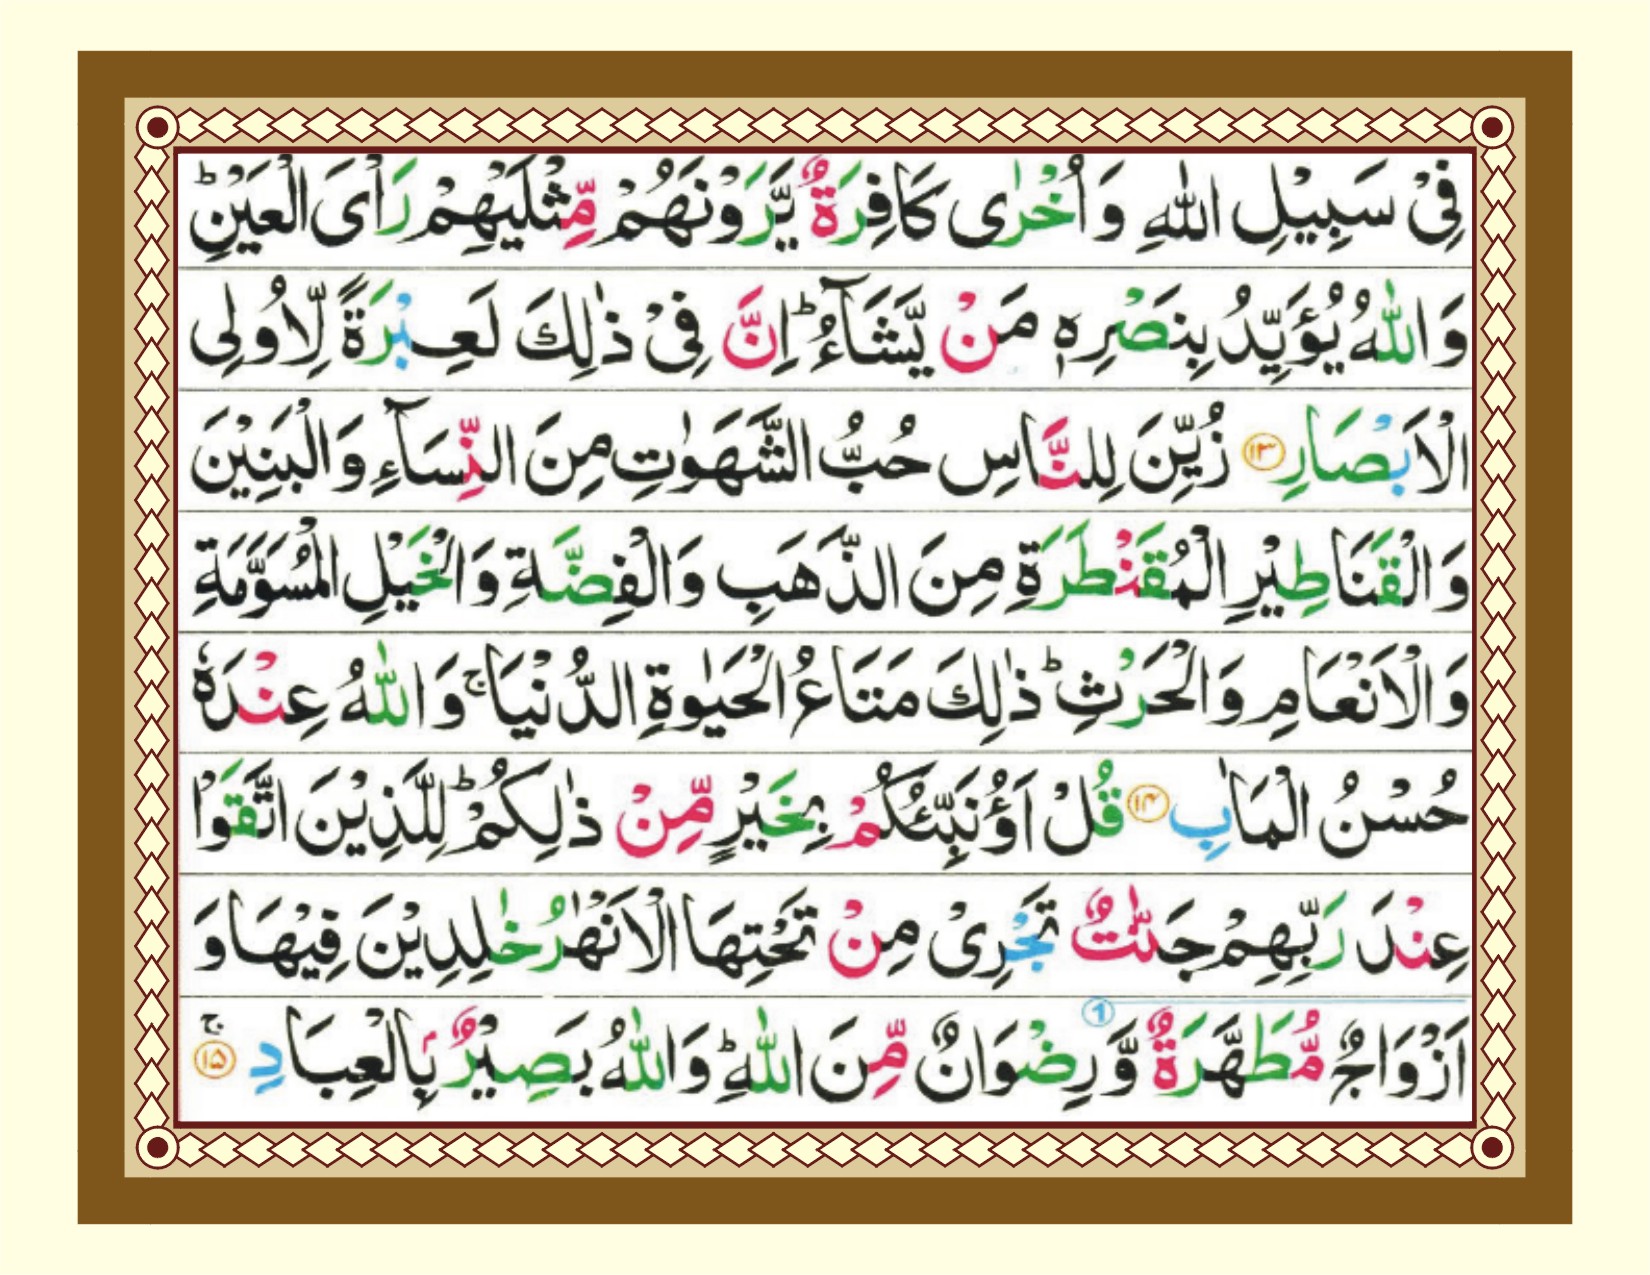 فِیْ سَبِیْلِ اللّٰهِ وَاُخْرٰی کَافِرَةٌ یَّرَوْنَهُمْ مِّثْلَیْهِمْ رَاْیَ الْعَیْنِ ؕ
وَاللّٰهُ یُؤَیِّدُ بِنَصْرِهٖ مَنْ یَّشَآءُ ؕ اِنَّ فِیْ ذٰلِكَ لَعِبْرَةً لِّاُولِی
الْاَبْصَارِ ﴿۱۳﴾ زُیِّنَ لِلنَّاسِ حُبُّ الشَّهَوٰتِ مِنَ النِّسَآءِ وَالْبَنِیْنَ
وَالْقَنَاطِیْرِ الْمُقَنْطَرَةِ مِنَ الذَّهَبِ وَالْفِضَّةِ وَالْخَیْلِ الْمُسَوَّمَةِ
وَالْاَنْعَامِ وَالْحَرْثِ ؕ ذٰلِكَ مَتَاعُ الْحَیٰوةِ الدُّنْیَا ۚ وَاللّٰهُ عِنْدَهٗ
حُسْنُ الْمَاٰبِ ﴿۱۴﴾ قُلْ اَؤُنَبِّئُكُمْ بِخَیْرٍ مِّنْ ذٰلِكُمْ ؕ لِلَّذِیْنَ اتَّقَوْا
عِنْدَ رَبِّهِمْ جَنّٰتٌ تَجْرِیْ مِنْ تَحْتِهَا الْاَنْهٰرُ خٰلِدِیْنَ فِیْهَا وَ
اَزْوَاجٌ مُّطَهَّرَةٌ وَّرِضْوَانٌ مِّنَ اللّٰهِ ؕ وَاللّٰهُ بَصِیْرٌۢ بِالْعِبَادِ ﴿۱۵﴾ ۚ